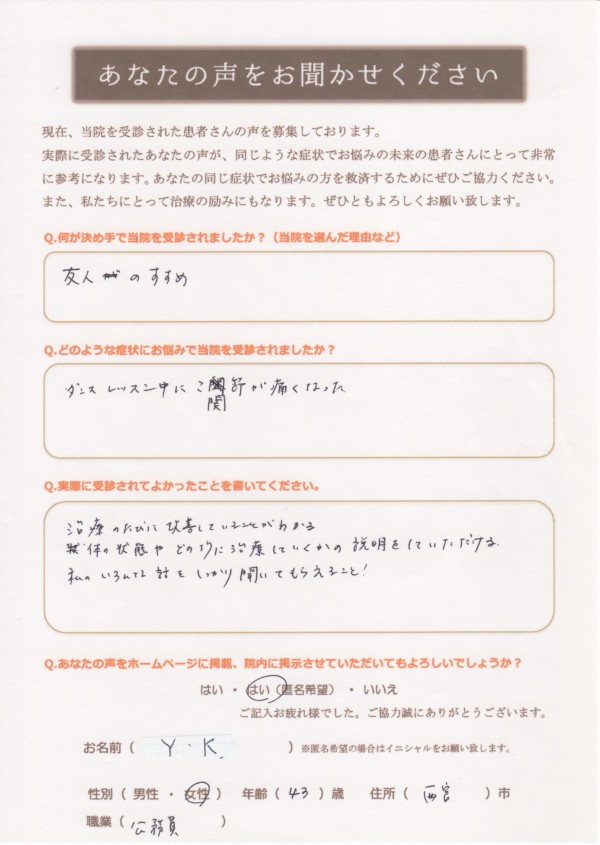 あなたの声をお聞かせください
現在、当院を受診された患者さんの声を募集しております。
実際に受診されたあなたの声が、同じような症状でお悩みの未来の患者さんにとって非常
に参考になります。あなたの同じ症状でお悩みの方を救済するためにぜひご協力ください。
また、私たちにとって治療の励みにもなります。ぜひともよろしくお願い致します。
Q.何が決め手で当院を受診されましたか？（当院を選んだ理由など）
友人のすすめ
Q.どのような症状にお悩みで当院を受診されましたか？
ダンスレッスン中にこ関節が痛くなった
Q.実際に受診されてよかったことを書いてください。
治療のたびに改善していることがわかる
体の状態やどの様に治療していくかの説明をしていただける
私のいろんな話をしっかり聞いてもらえること！
Q.あなたの声をホームページに掲載、院内に掲示させていただいてもよろしいでしょうか？
はい ・ はい（匿名希望） ・ いいえ
ご記入お疲れ様でした。ご協力誠にありがとうございます。
お名前（ Y.K. ）※匿名希望の場合はイニシャルをお願い致します。
性別（ 男性 ・ 女性 ） 年齢（ 43 ）歳 住所（ 西宮 ）市
職業（ 公務員 ）